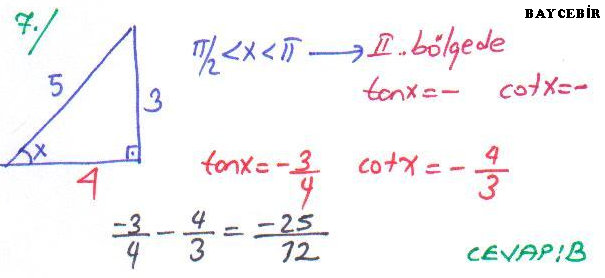 BAYCEBİR
7./
π/2 < x < π → II. bölgede
tanx = - cotx = -
5
3
x
4
tanx = -3/4 cotx = -4/3
-3/4 - 4/3 = -25/12
CEVAP: B